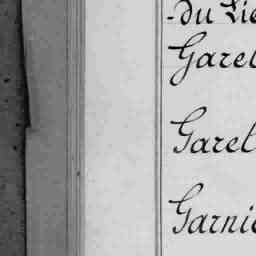 -du Lie
Garel
Garel
Garnie